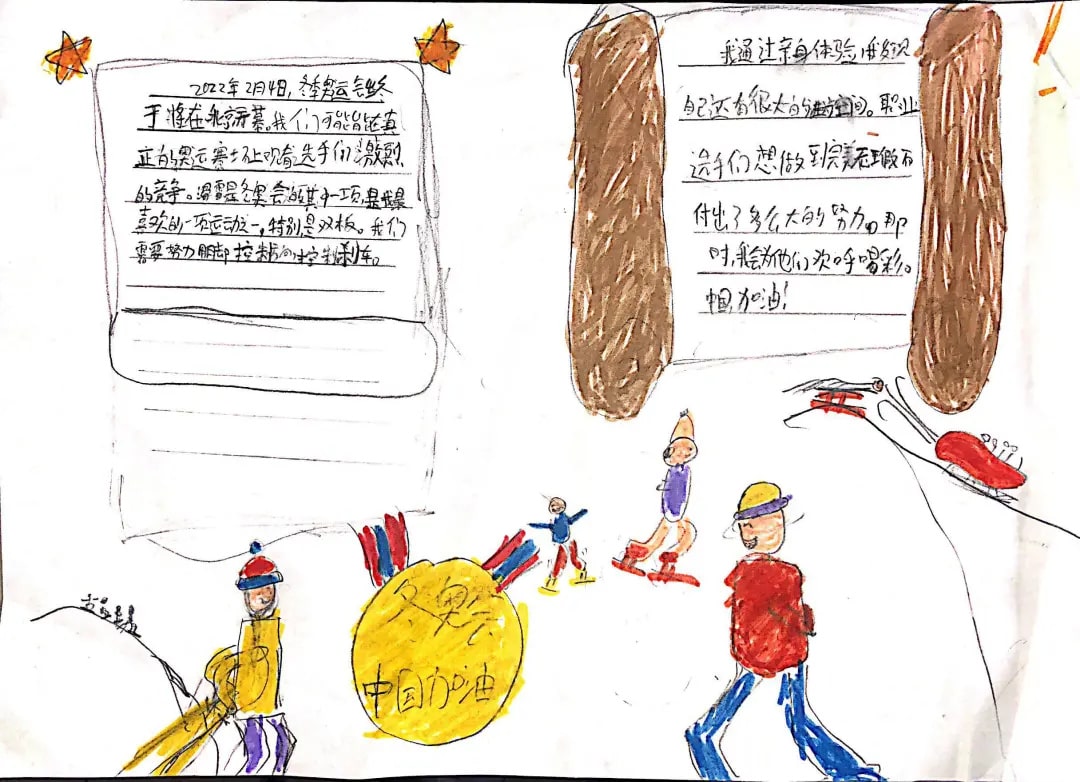 2022年2月4日，冬季奥运会终
于将在北京开幕。我们可能能在真
正的奥运赛场上观看选手们激烈
的竞争。滑雪是冬奥会的其中一项，是我最
喜欢的一项运动之一，特别是双板。我们
需要努力用脚控制方向，控制刹车。
我通过亲身体验，我发现
自己还有很大的进步空间。职业
选手们想做到完美无瑕，
付出了多么大的努力。那
时，我会为他们欢呼喝彩。
中国，加油！
冬奥会
中国加油